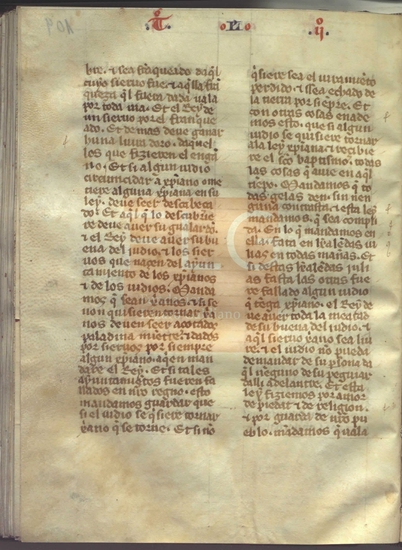 bre. & sea franqueado daq̃l
cuyo siervo fue. & aq̃lla fra
queza q̃l fuere dada vala
por toda via. Et el Rey de
un siervo por el franque
ado. Et demas deve ganar
buna luva doro. daquel
los que fizieren el enga
no. Et si algun iudio
circuncidar a xp̃iano o me
tiere alguna xp̃iana en su
ley. deve seer descabeça
do. Et aq̃l q̃ lo descubrie
re deve aver su gualardo.
& el Rey deve aver su bu
ena del iudio. & los sier
vos que nacen del ayun
tamiento de los xp̃ianos
& de los iudios. Manda
mos q̃ sean xp̃anos. & si se
non quisieren tornar xp̃a
nos deven seer açotados
paladina miẽtre. & dados
por siervos por siempre
algun xp̃iano. a q̃en man
dare el Rey. Et si tales
ayuntamientos fueren fa
llados en nr̃o regno. esto
mandamos guardar que
si el iudio se q̃siere tornar
xp̃ano q̃ se torne. Et si nõ
q̃siere sea el iuramẽto
perdido. & sea echado de
la tierra por siẽpre. Et
con otras cosas enade
mos esto. que si algun
iudio se quisiere tornar
a la ley xp̃iana. & recibie
re el sc̃o baptismo. todas
las cosas q̃ ave en aq̃l
tiẽpo. Mandamos q̃ to
das gelas den. sin nen
guna contrasta. & esta ley
mandamos. q̃ sea compli
da. En lo q̃ mandamos en
ella. fata en kalẽdas iu
lias en todas maneras. Et
si destas kalẽdas juli
as fasta las otras fue
re fallado algun iudio
q̃ tenga xp̃iano. el Rey de
ve aver toda la meatad
de su buena del iudio. &
aq̃l siervo xp̃ano sea liu
re. & el iudio no pueda
demandar de su persona da
q̃l ni nenguno de su peguiar
dalli adelantre. Et esta
ley fiziemos por amor
de piedat & de religion.
& por guarda de nr̃o pu
eblo. mãdamos q̃ vala